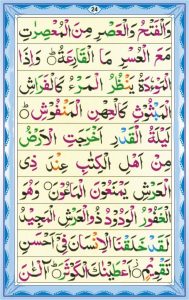 24
وَالْفَتْحُ وَالْعَصْرِ مِنَ الْمُعْصِرٰتِ
مَعَ الْعُسْرِ مَا الْقَارِعَةُ وَاِذَا
الْمَوْءٗدَةُ يَنْظُرُ الْمَرْءُ كَالْفَرَاشِ
الْمَبْثُوْثِ كَالْعِهْنِ الْمَنْفُوْشِ
لَيْلَةُ الْقَدْرِ اَخْرَجَتِ الْاَرْضُ
مِنْ اَهْلِ الْكِتٰبِ عِنْدَ ذِى
الْعَرْشِ يَمْنَعُوْنَ الْمَاعُوْنَ وَهُوَ
الْغَفُوْرُ الْوَدُوْدُ ذُو الْعَرْشِ الْمَجِيْدُ
لَقَدْ خَلَقْنَا الْاِنْسَانَ فِىْٓ اَحْسَنِ
تَقْوِيْمٍ اَعْطَيْنٰكَ الْكَوْثَرَ